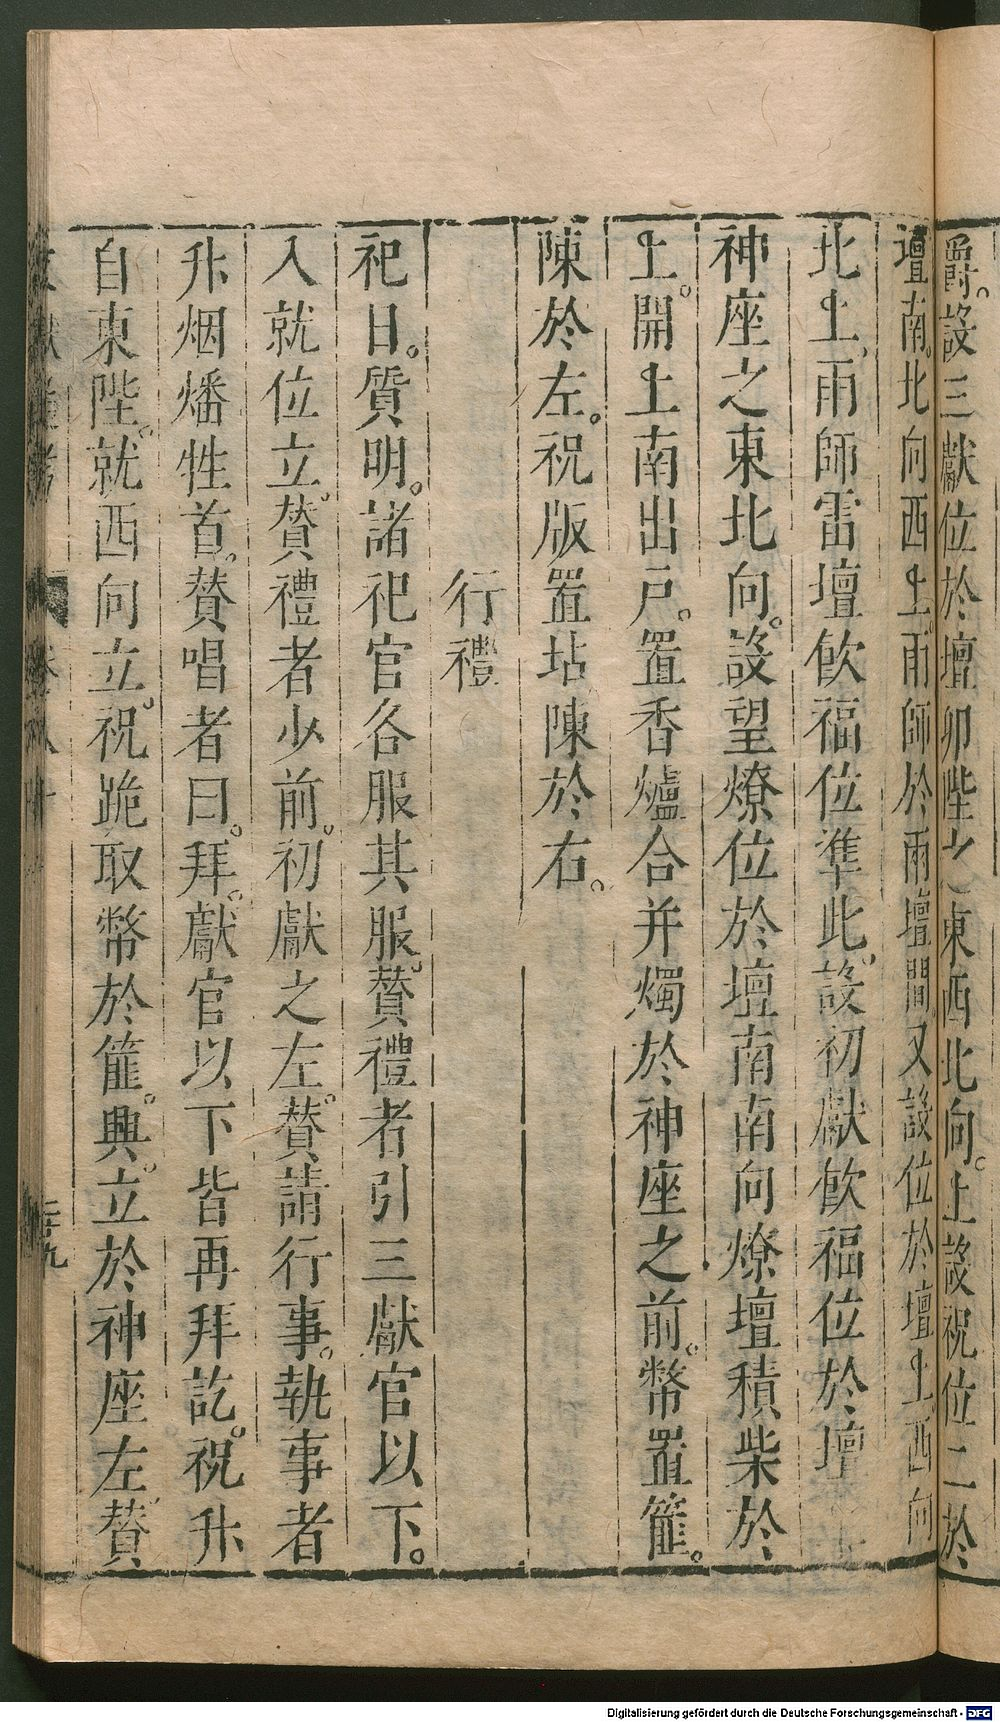 爵。設三獻位於壇卯陛之東西北向。上設祝位二於
壇南。北向西上。雨師於雨壇間又設位於壇上西向
北上。雨師雷壇飲福位準此。設初獻飲福位於壇
神座之東北向。設望燎位於壇南南向燎壇積柴於
上。開上南出戶。置香爐合并燭於神座之前。幣置篚。
陳於左。祝版置坫陳於右。
行禮
祀日。質明。諸祀官各服其服。贊禮者引三獻官以下。
入就位立。贊禮者少前。初獻之左。贊請行事。執事者
升烟燔牲首。贊唱者曰。拜。獻官以下皆再拜訖。祝升
自東陛。就西向立。祝跪取幣於篚。興。立於神座左。贊
二十九
Digitalisierung gefördert durch die Deutsche Forschungsgemeinschaft - DFG